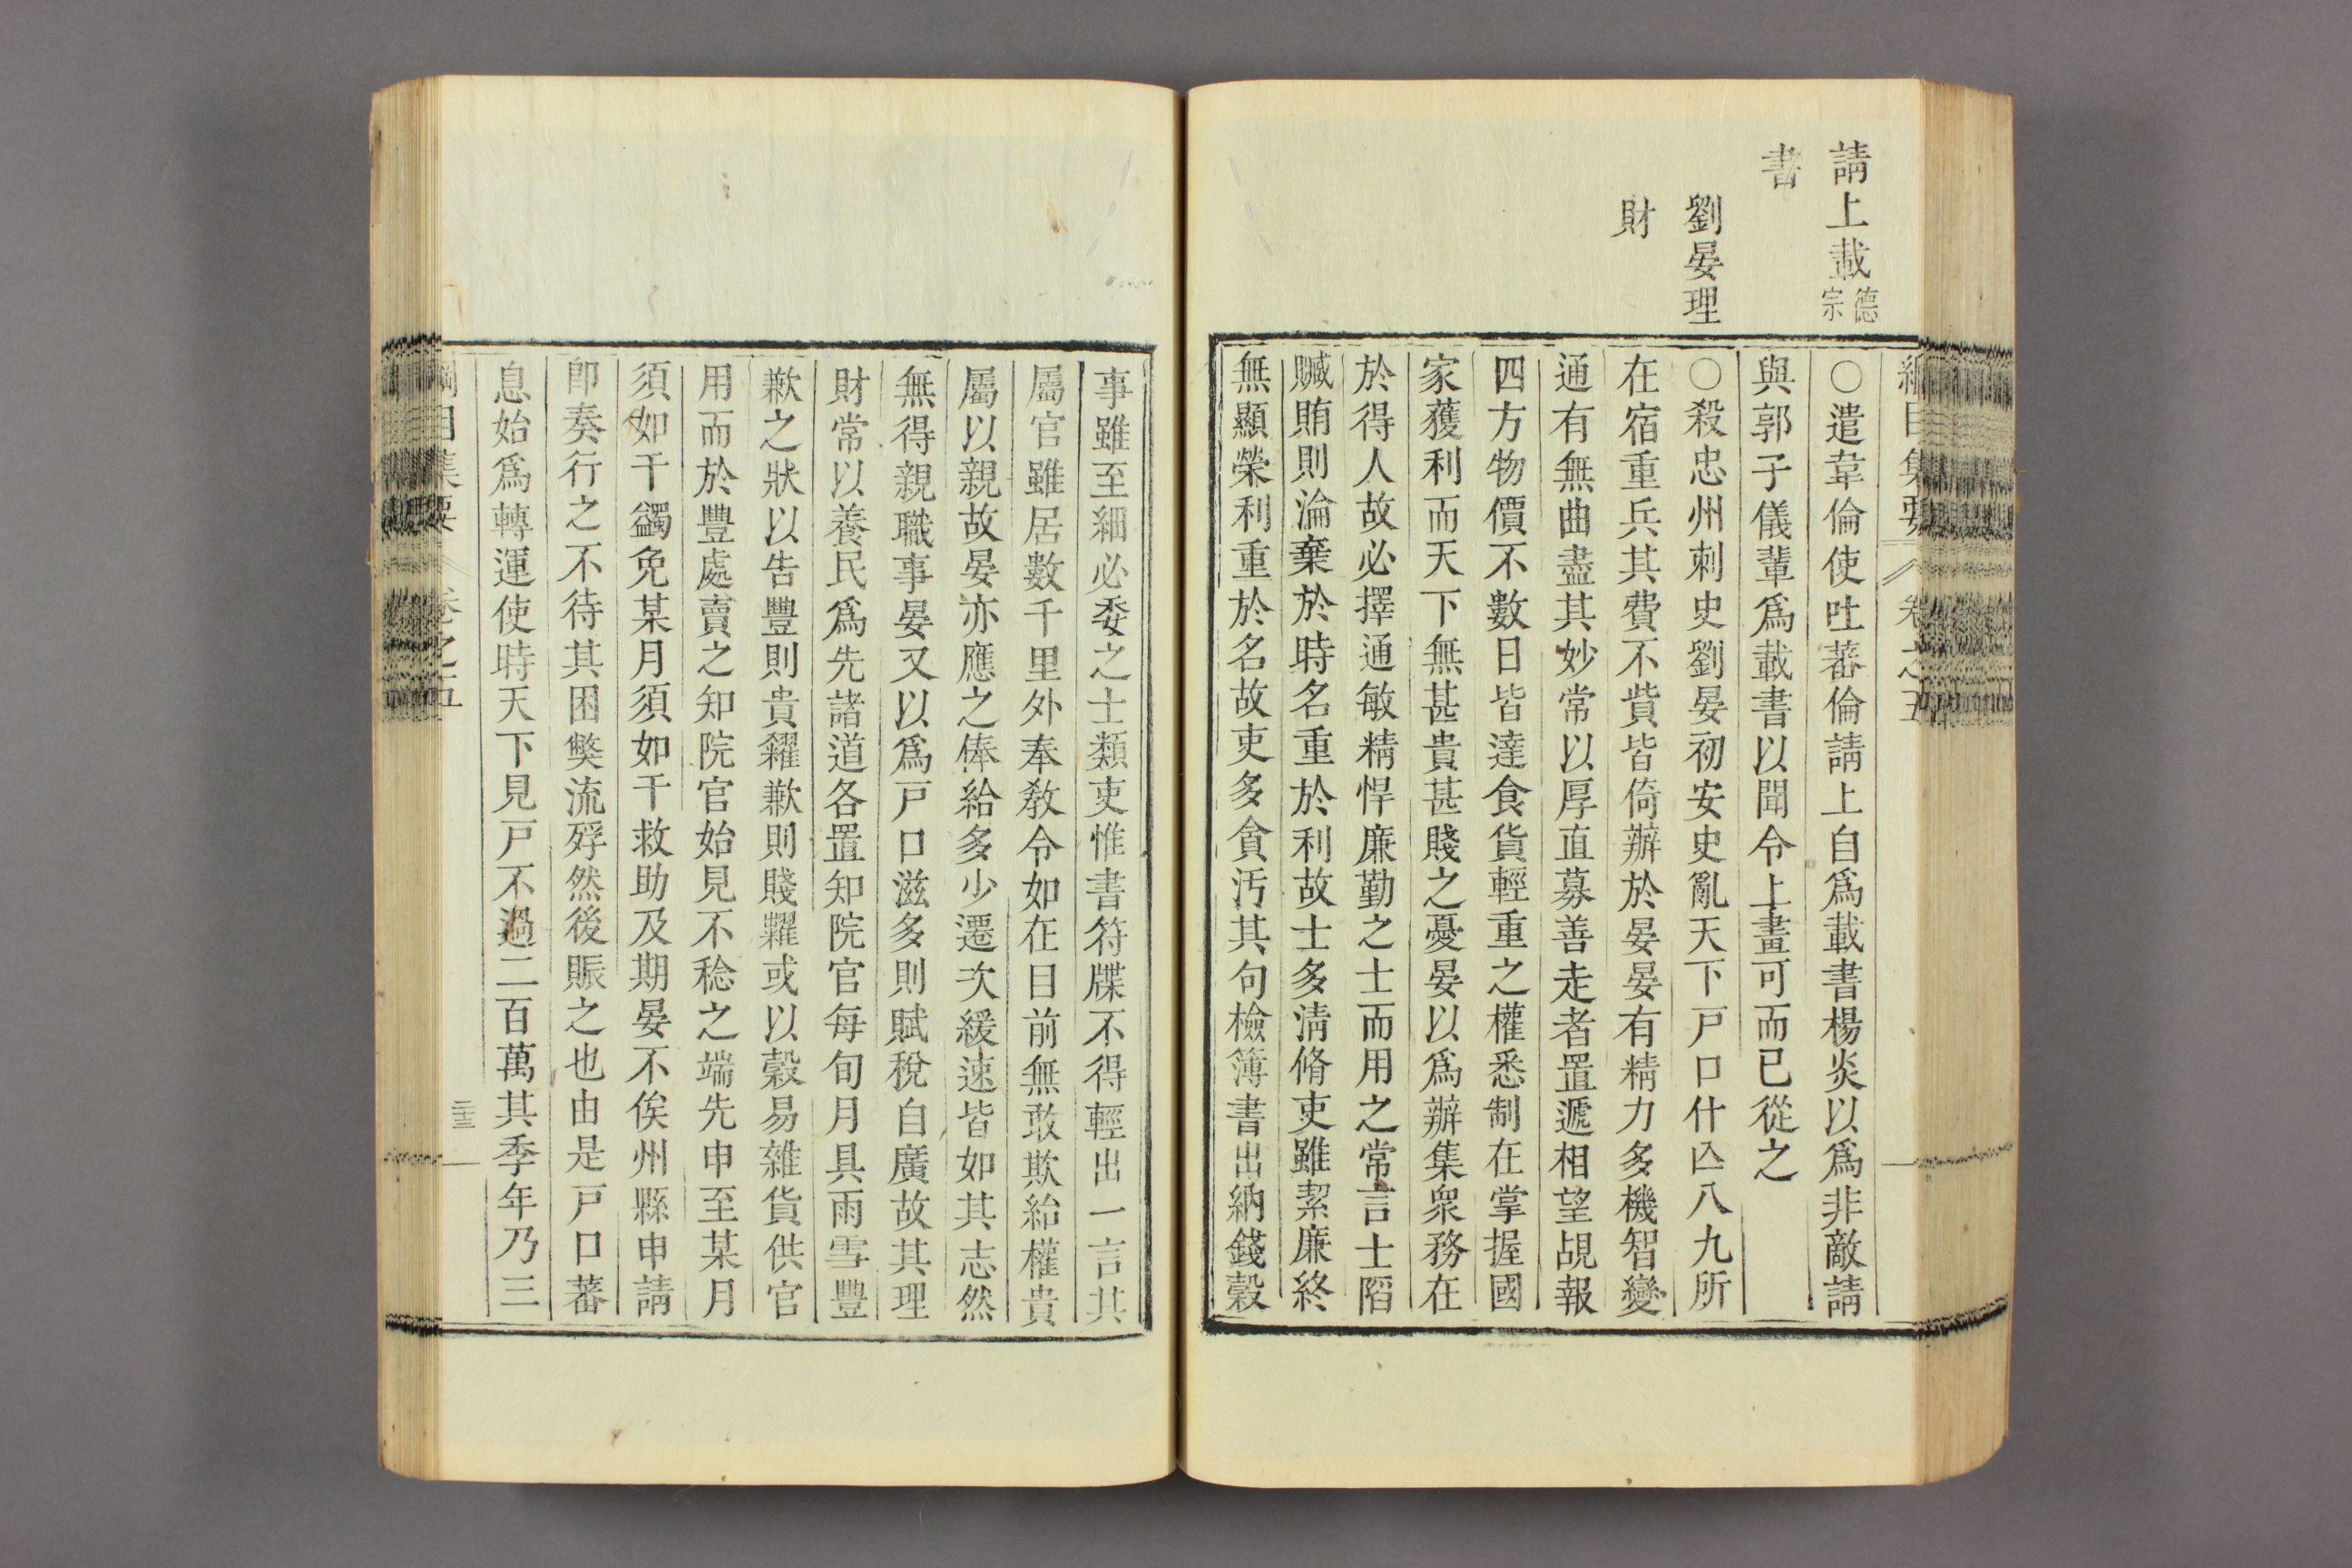 請上載德宗
書
劉晏理
財
綱目集要 卷之五
○遣韋倫使吐蕃倫請上自爲載書楊炎以爲非敵請
與郭子儀輩爲載書以聞令上畫可而已從之
○殺忠州刺史劉晏初安史亂天下戸口什亾八九所
在宿重兵其費不貲皆倚辦於晏晏有精力多機智變
通有無曲盡其妙常以厚直募善走者置遞相望覘報
四方物價不數日皆達食貨輕重之權悉制在掌握國
家獲利而天下無甚貴甚賤之憂晏以爲辦集衆務在
於得人故必擇通敏精悍廉勤之士而用之常言士䧟
贓賄則淪棄於時名重於利故士多淸脩吏雖潔廉終
無顯榮利重於名故吏多貪汚其句檢簿書出納錢穀
事雖至細必委之士類吏惟書符牒不得輕出一言其
屬官雖居數千里外奉敎令如在目前無敢欺紿權貴
屬以親故晏亦應之俸給多少遷次緩速皆如其志然
無得親職事晏又以爲戸口滋多則賦稅自廣故其理
財常以養民爲先諸道各置知院官每旬月具雨雪豐
歉之狀以告豐則貴糴歉則賤糶或以穀易雜貨供官
用而於豐處賣之知院官始見不稔之端先申至某月
須如干蠲免某月須如干救助及期晏不俟州縣申請
卽奏行之不待其困弊流殍然後賑之也由是戸口蕃
息始爲轉運使時天下見戸不過二百萬其季年乃三
綱目集要 卷之五 二十三